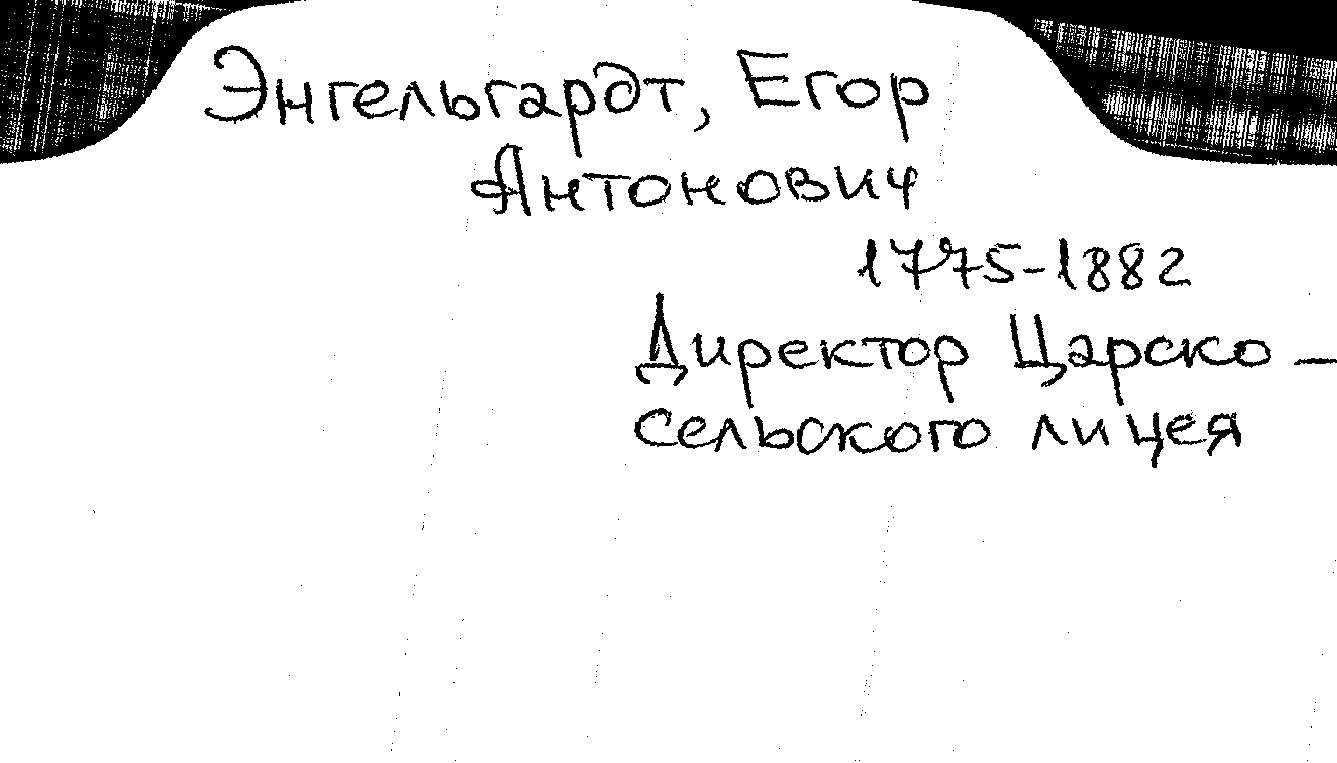 Энгельгардт, Егор
Антонович
1775-1882
Директор Царско-
сельского лицея